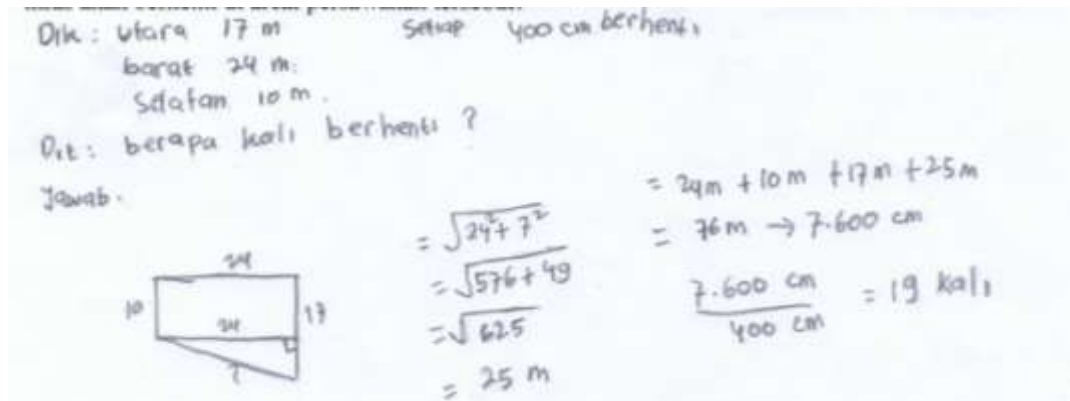 Dik : Utara 17 m Setiap 400 cm berhenti
barat 24 m.
Selatan 10 m.
Dit : berapa kali berhenti ?
Jawab.
24
10
24
17
?
= √24² + 7²
= √576 + 49
= √625
= 25 m
= 24m + 10m + 17m + 25m
= 76m → 7.600 cm
7.600 cm
400 cm
= 19 kali